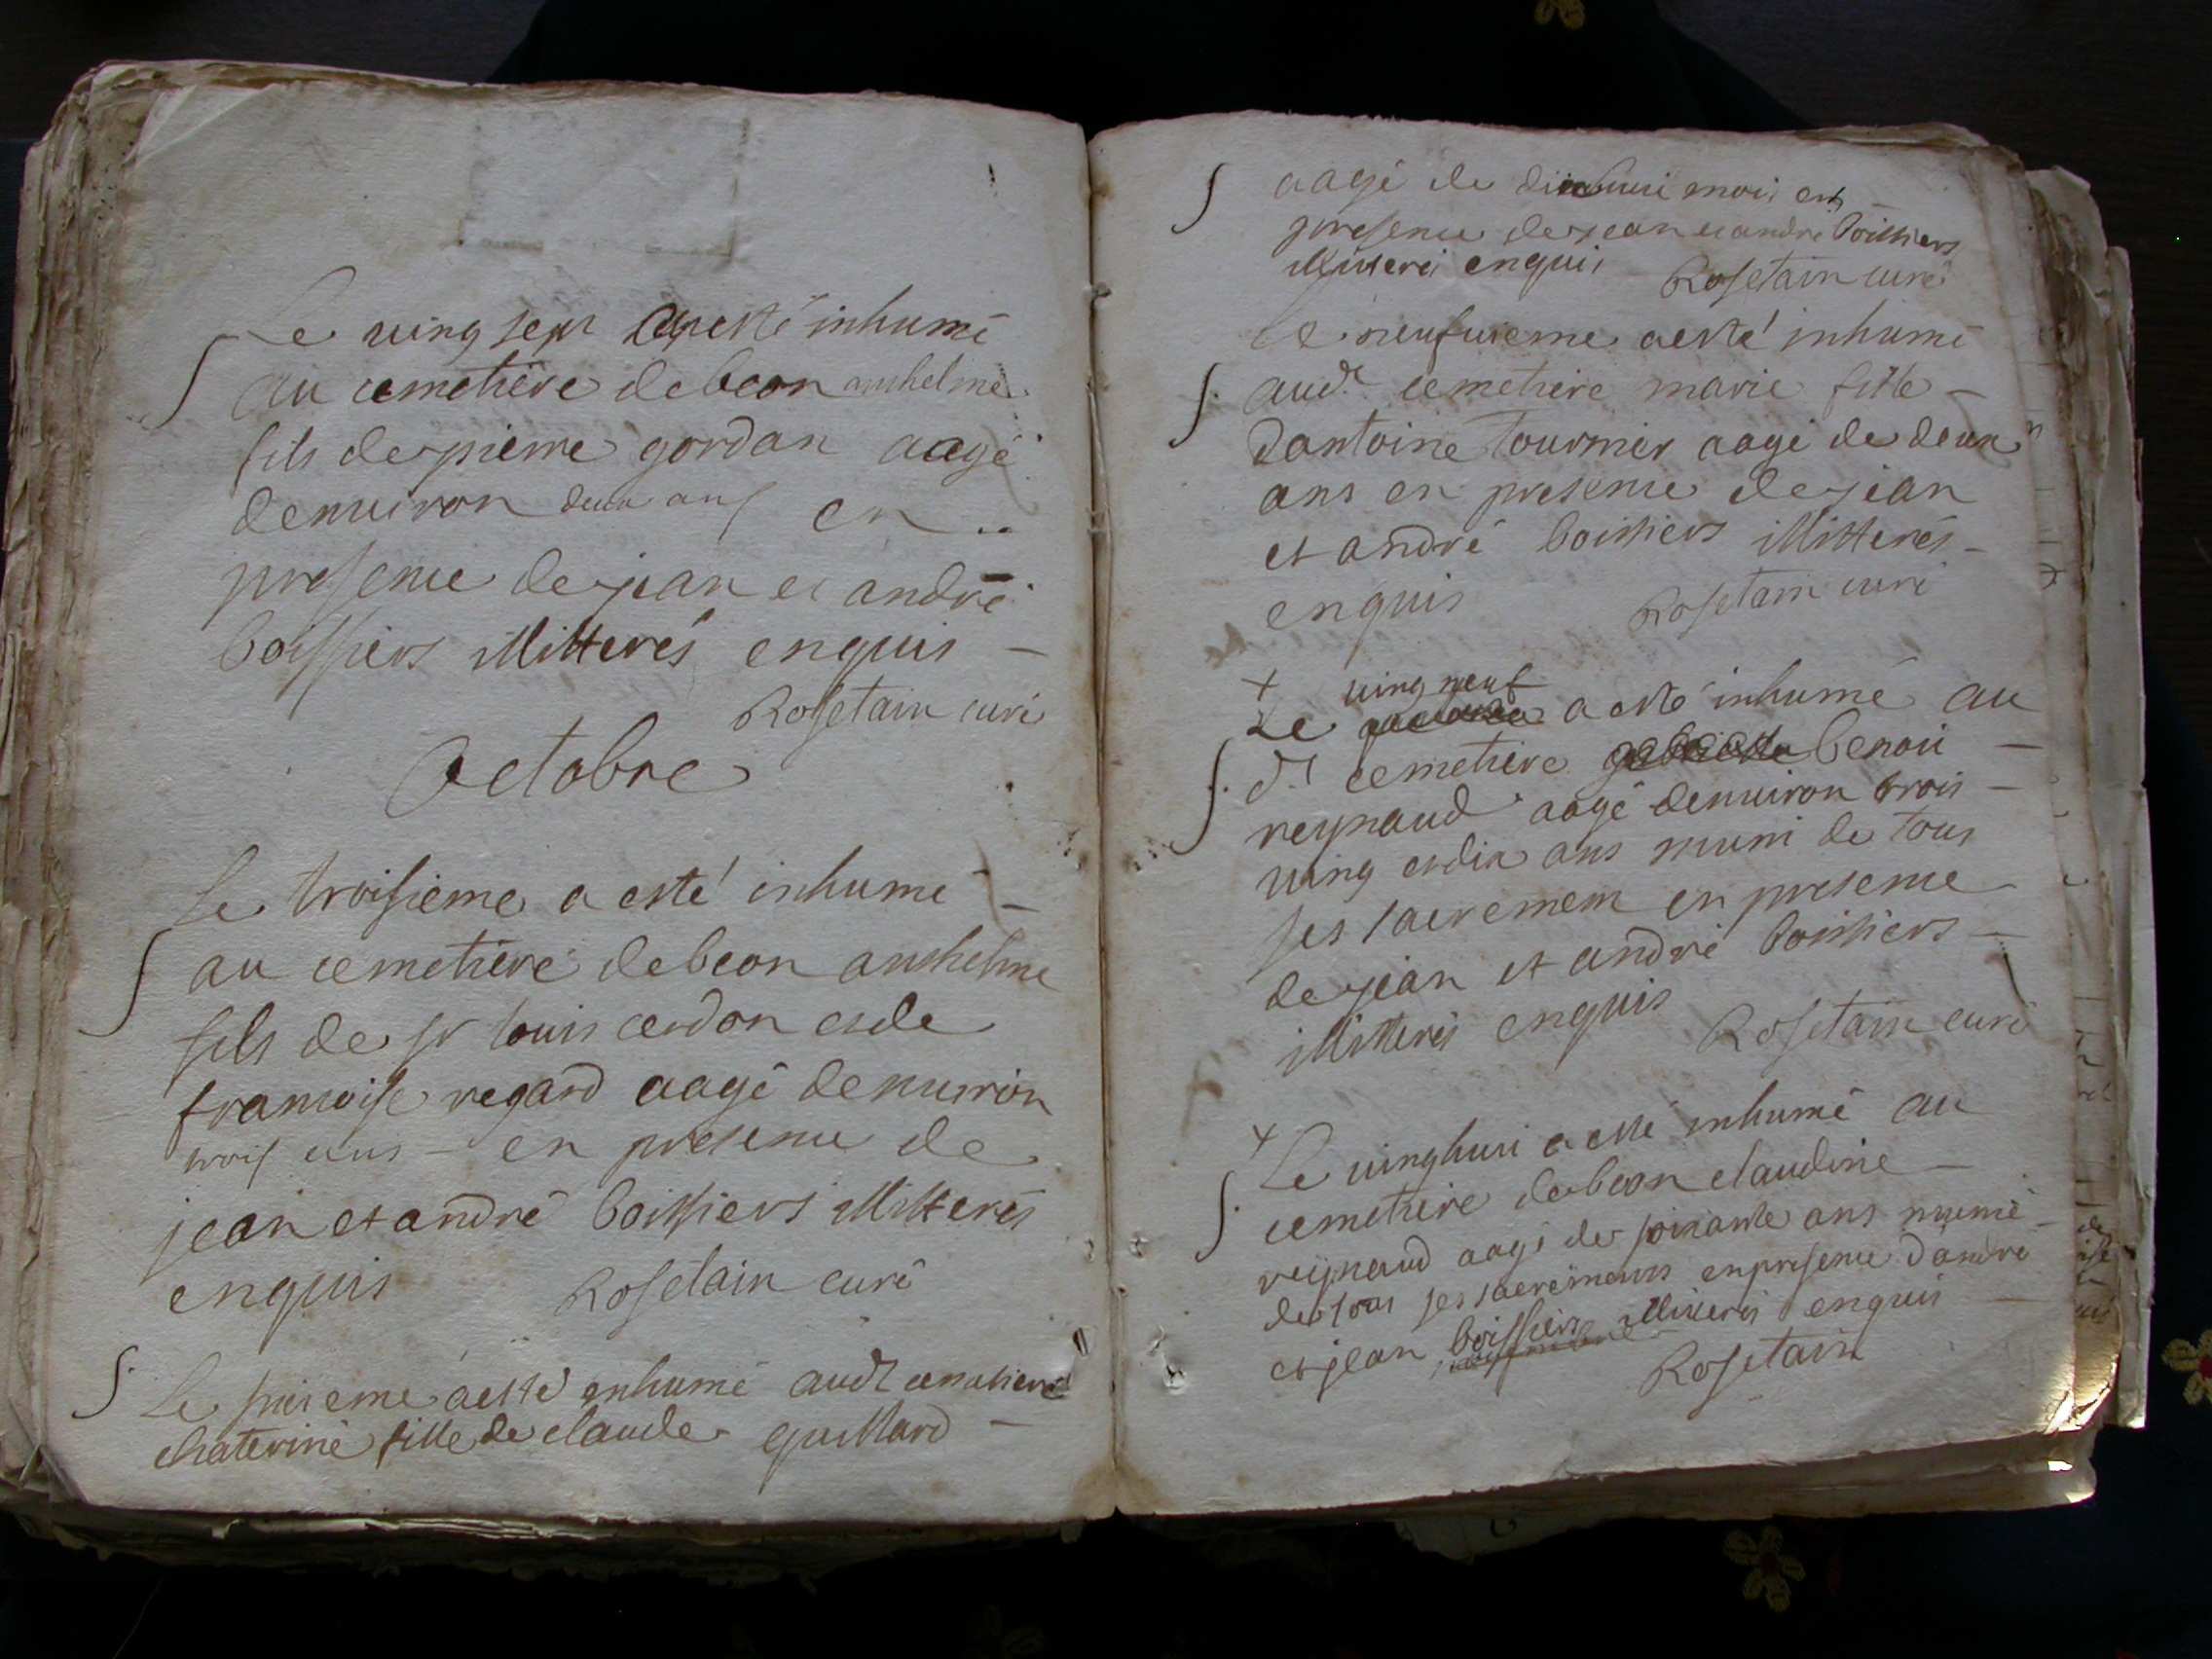 Le uing sept a esté inhumé
au cemetiere de beon anthelme
fils de pierre gordan aagé
denuiron deux ans en
presence de jean et andré
boissiers illitterés enquis
Rosetain curé
Octobre
Le troisieme a esté inhumé
au cemetiere de beon anthelme
fils de sr louis cerdon et de
francoise regard aagé denuiron
trois ans en presence de
jean et andré boissiers illitterés
enquis Rosetain curé
Le sixieme a esté enhumé audt cemetiere
chaterine fille de claude guillard
aagé de dixhuit mois en
presence de jean et andre boissiers
illiterés enquis Rosetain curé
Le neufuieme a esté inhumé
audt cemetiere marie fille
dantoine tournier aagé de deux
ans en presence de jean
et andré boissiers illitterés
enquis Rosetain curé
uing neuf
Le a esté inhumé au
dt cemetiere benoit
reynaud aagé denuiron trois
uing et dix ans muni de tous
ses sacremem en presence
de jean et andré boissiers
illitterés enquis Rosetain curé
Le uinghuit a esté inhumé au
cemetiere de beon claudine
reynaud aagé de soixante ans munie
de tous ses sacrements en presence dandré
et jean boissiers illiterés enquis
Rosetain